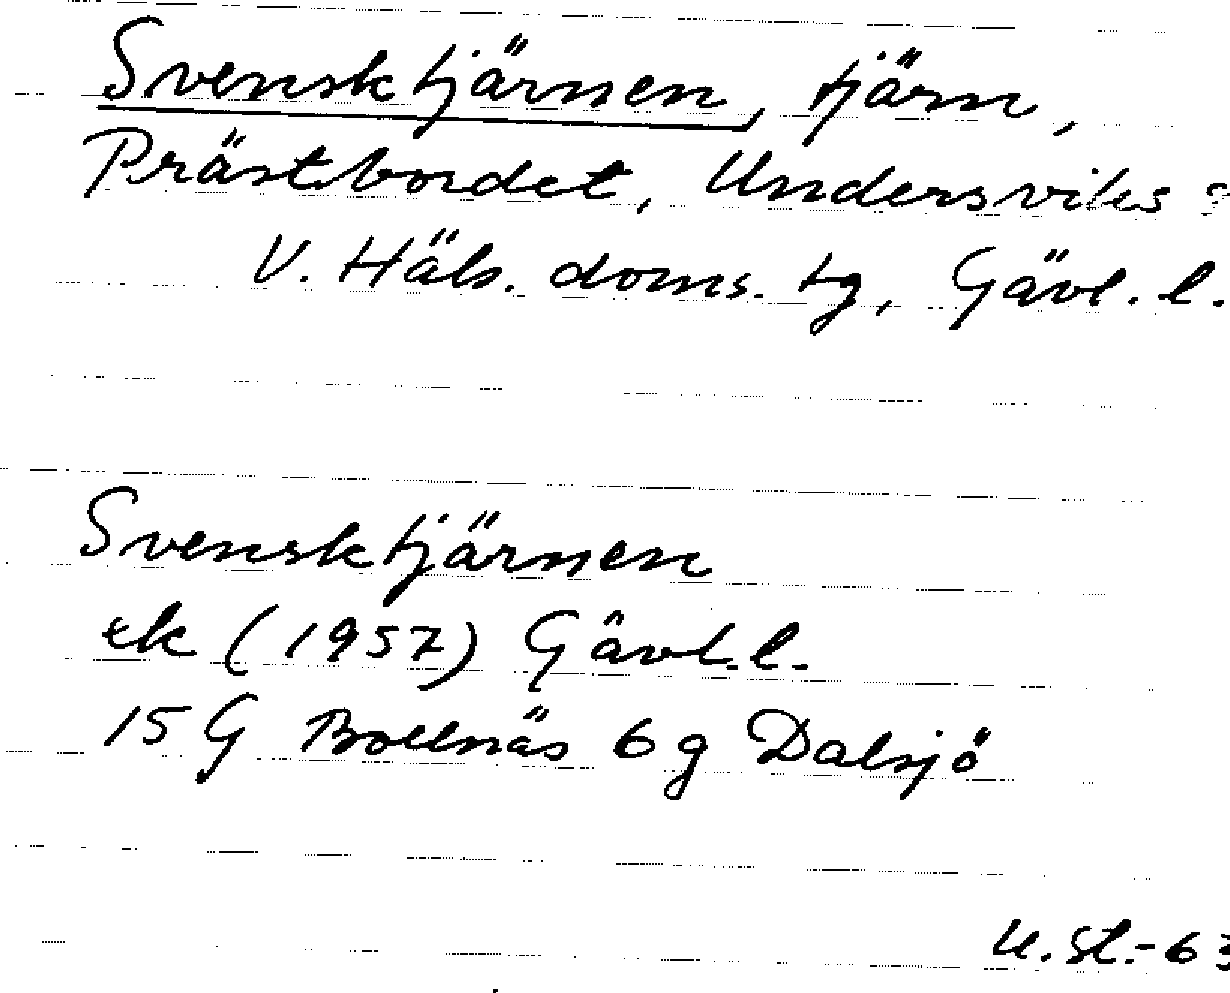 Svensktjärnen, tjärn,
Prästbordet, Undersviks
V. Häls. doms. tg, Gävl. l.
Svensktjärnen
ek (1957) Gävl. l.
15 G Bollnäs 6 g Dalsjö
U. St. -63